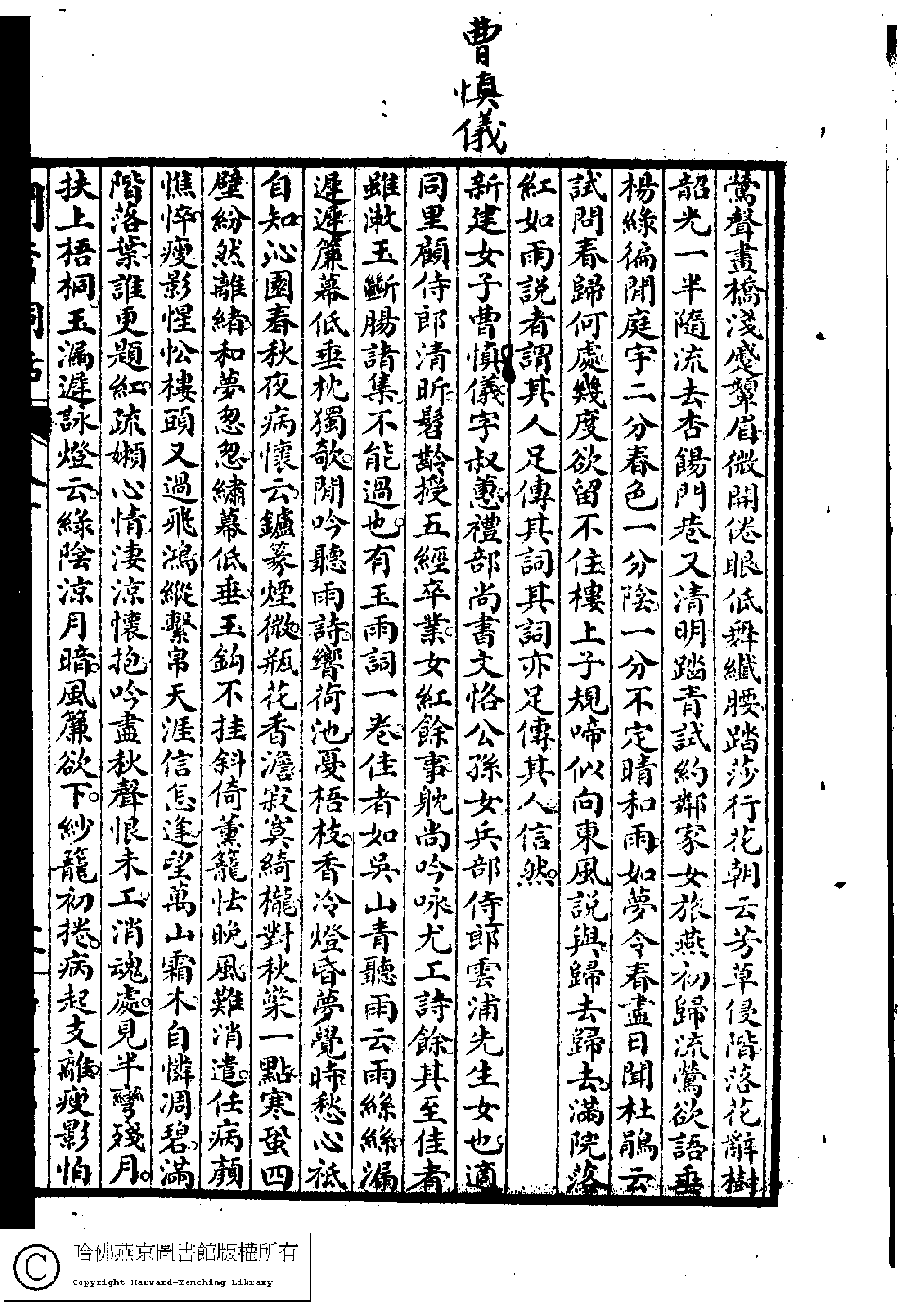 曹慎儀
鶯聲畫橋淺蹙顰眉微開倦眼低舞纖腰踏莎行花朝云芳草侵階落花辭樹
韶光一半隨流去杏餳門巷又清明踏青試約鄰家女旅燕初歸流鶯欲語垂
楊綠徧閒庭宇二分春色一分陰一分不定晴和雨如夢令春盡日聞杜鵑云
試問春歸何處幾度欲留不住樓上子規啼似向東風說與歸去歸去滿院落
紅如雨說者謂其人足傳其詞其詞亦足傳其人信然
新建女子曹慎儀字叔蕙禮部尚書文恪公孫女兵部侍郎雲浦先生女也適
同里顧侍郎清昕髫齡授五經卒業女紅餘事躭尚吟咏尤工詩餘其至佳者
雖漱玉斷腸諸集不能過也有玉雨詞一卷佳者如吳山青聽雨云雨絲絲漏
遲遲簾幕低垂枕獨欹閒吟聽雨詩響荷池戛梧枝香冷燈昏夢覺時愁心祇
自知沁園春秋夜病懷云鑪篆煙微瓶花香澹寂寞綺櫳對秋檠一點寒蛩四
壁紛然離緒和夢怱怱繡幕低垂玉鈎不挂斜倚薰籠怯晚風難消遣任病顏
憔悴瘦影惺忪樓頭又過飛鴻縱繫帛天涯信怎逢望萬山霜木自憐凋碧滿
階落葉誰更題紅疏嬾心情淒涼懷抱吟盡秋聲恨未工消魂處見半彎殘月
扶上梧桐玉漏遲詠燈云綠陰涼月暗風簾欲下紗籠初捲病起支離瘦影怕
哈佛燕京圖書館版權所有
Copyright Harvard-Yenching Library